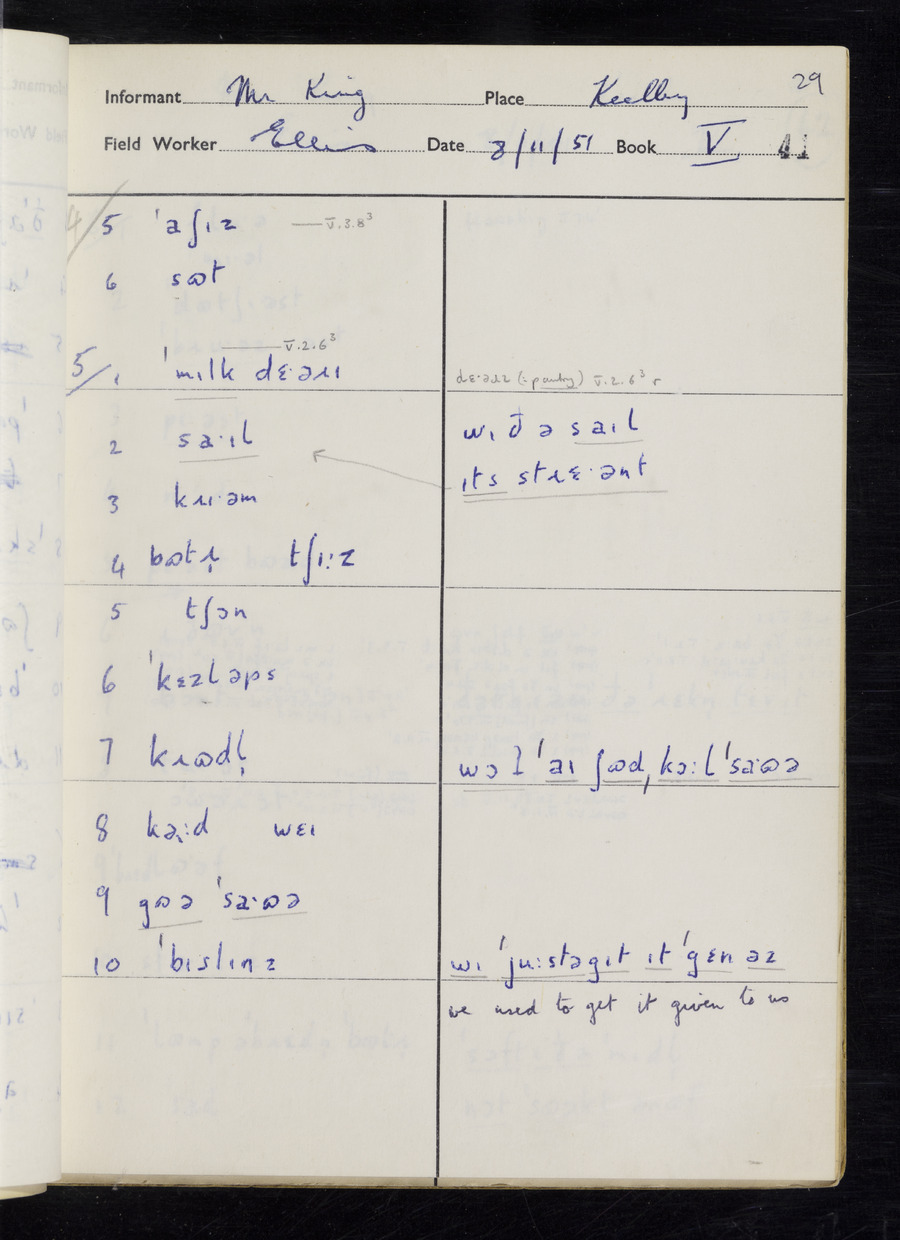 29
Informant Mr King Place Keelby
Field Worker Ellis Date 3/11/51 Book V 41
4/ 5 ˈaʃɪz — V.3.8³
6 sɷt
— V.2.6³
5/ 1 ˈmɪlk dɛˑəɹɪ
dɛˑəɹɪ (= pantry) V.2.6³ r
2 saˑɪl
wɪð ə saɪl
ɪts stɹɛˑənt
3 kɹɪˑəm
4 bɷtɹ̩ tʃɪːz
5 tʃɔn
6 ˈkɛzləps
7 kɹɷdl̩
wɔl ˈaɪ ʃɷd, kɔːl ˈsaˑɷə
8 kəːd wɛɪ
9 gɷə ˈsaˑɷə
10 ˈbɪslɪnz
wɪ ˈjuːstəgɪt ɪt ˈgɛn əz
we used to get it given to us